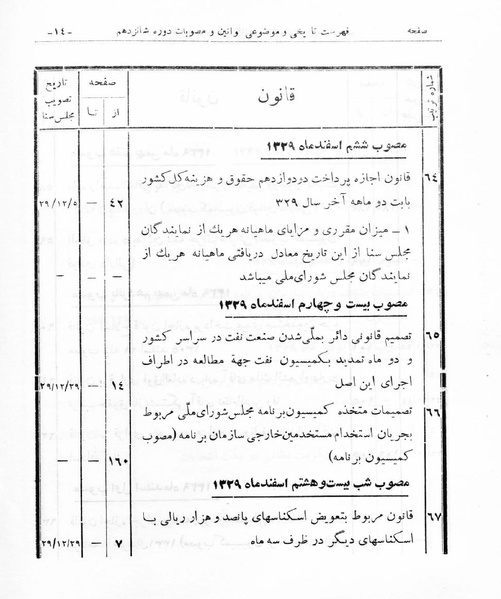 صفحه فهرست تاریخی و موضوعی قوانین و مصوبات دوره شانزدهم -۱۴-
شماره ترتیب قانون صفحه تاریخ تصویب مجلس سنا
از تا
مصوب ششم اسفندماه ۱۳۲۹
۶۴ قانون اجازه پرداخت دودوازدهم حقوق و هزینه کل کشور
بابت دو ماهه آخر سال ۳۲۹ ۴۲ — ۲۹/۱۲/۵
۱ – میزان مقرری و مزایای ماهیانه هریك از نمایندگان
مجلس سنا از این تاریخ معادل دریافتی ماهیانه هریك از
نمایندگان مجلس شورای ملی میباشد — —
مصوب بیست و چهارم اسفندماه ۱۳۲۹
۶۵ تصمیم قانونی دائر بملی شدن صنعت نفت در سراسر کشور
و دو ماه تمدید بکمیسیون نفت جهة مطالعه در اطراف
اجرای این اصل ۱۴ — ۲۹/۱۲/۲۹
۶۶ تصمیمات متخذه کمیسیون برنامه مجلس شورای ملی مربوط
بجریان استخدام مستخدمین خارجی سازمان برنامه (مصوب
کمیسیون برنامه) ۱۶۰ — —
مصوب شب بیست و هشتم اسفندماه ۱۳۲۹
۶۷ قانون مربوط بتعویض اسکناسهای پانصد و هزار ریالی با
اسکناسهای دیگر در ظرف سه ماه ۷ — ۲۹/۱۲/۲۹